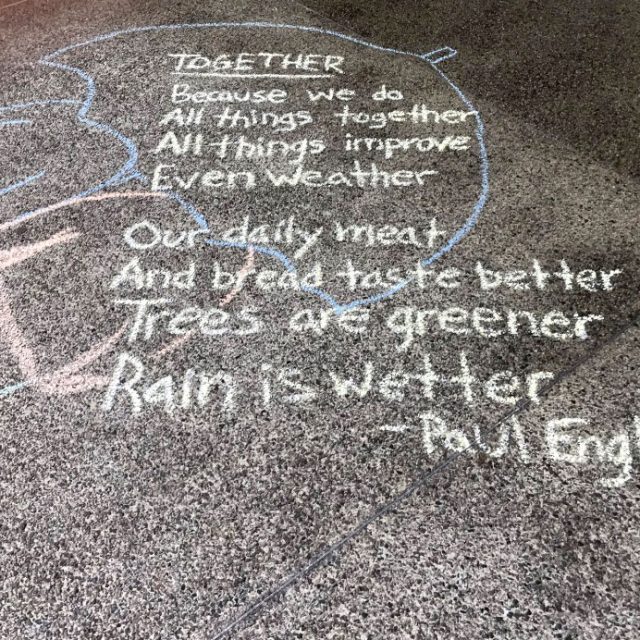 TOGETHER
Because we do
All things together
All things improve
Even weather
Our daily meat
And bread taste better
Trees are greener
Rain is wetter
- Paul Engl